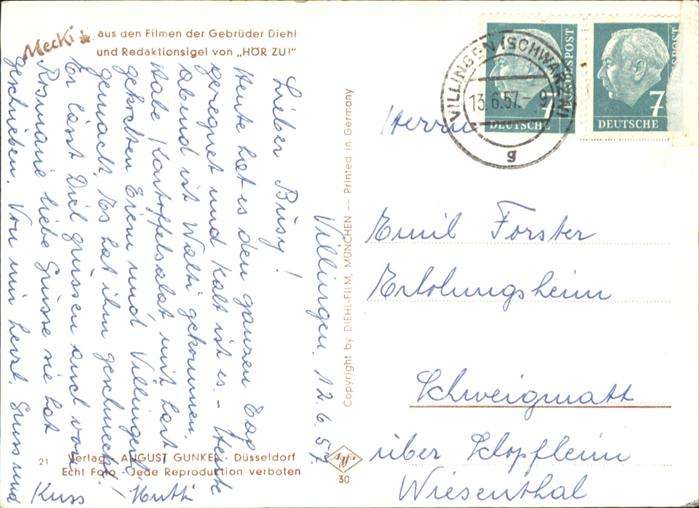 Mecki
aus den Filmen der Gebrüder Diehl
und Redaktionsigel von „HÖR ZU!"
Villingen, 12.6.57
Lieber Busy!
Heute hat es den ganzen Tag
geregnet und kalt ist es. - Heute
abend ist Walti gekommen,
habe Kartoffelsalat mit hart
gekochten Eiern und Villinger
gemacht. Es hat ihm geschmeckt!
Er lässt Dich grüssen auch von
Rosmarie liebe Grüsse sie hat
geschrieben. Von mir herzl. Gruss und
Kuss Mutti
Copyright by DIEHL-FILM, MÜNCHEN — Printed in Germany
30
21 Verlag AUGUST GUNKEL - Düsseldorf
Echt Foto - Jede Reproduktion verboten
VILLINGEN (SCHWARZW)
13.6.57.
g
BUNDESPOST
7
DEUTSCHE
7
DEUTSCHE
Herrn
Emil Forster
Erholungsheim
Schweigmatt
über Schopfheim
Wiesenthal